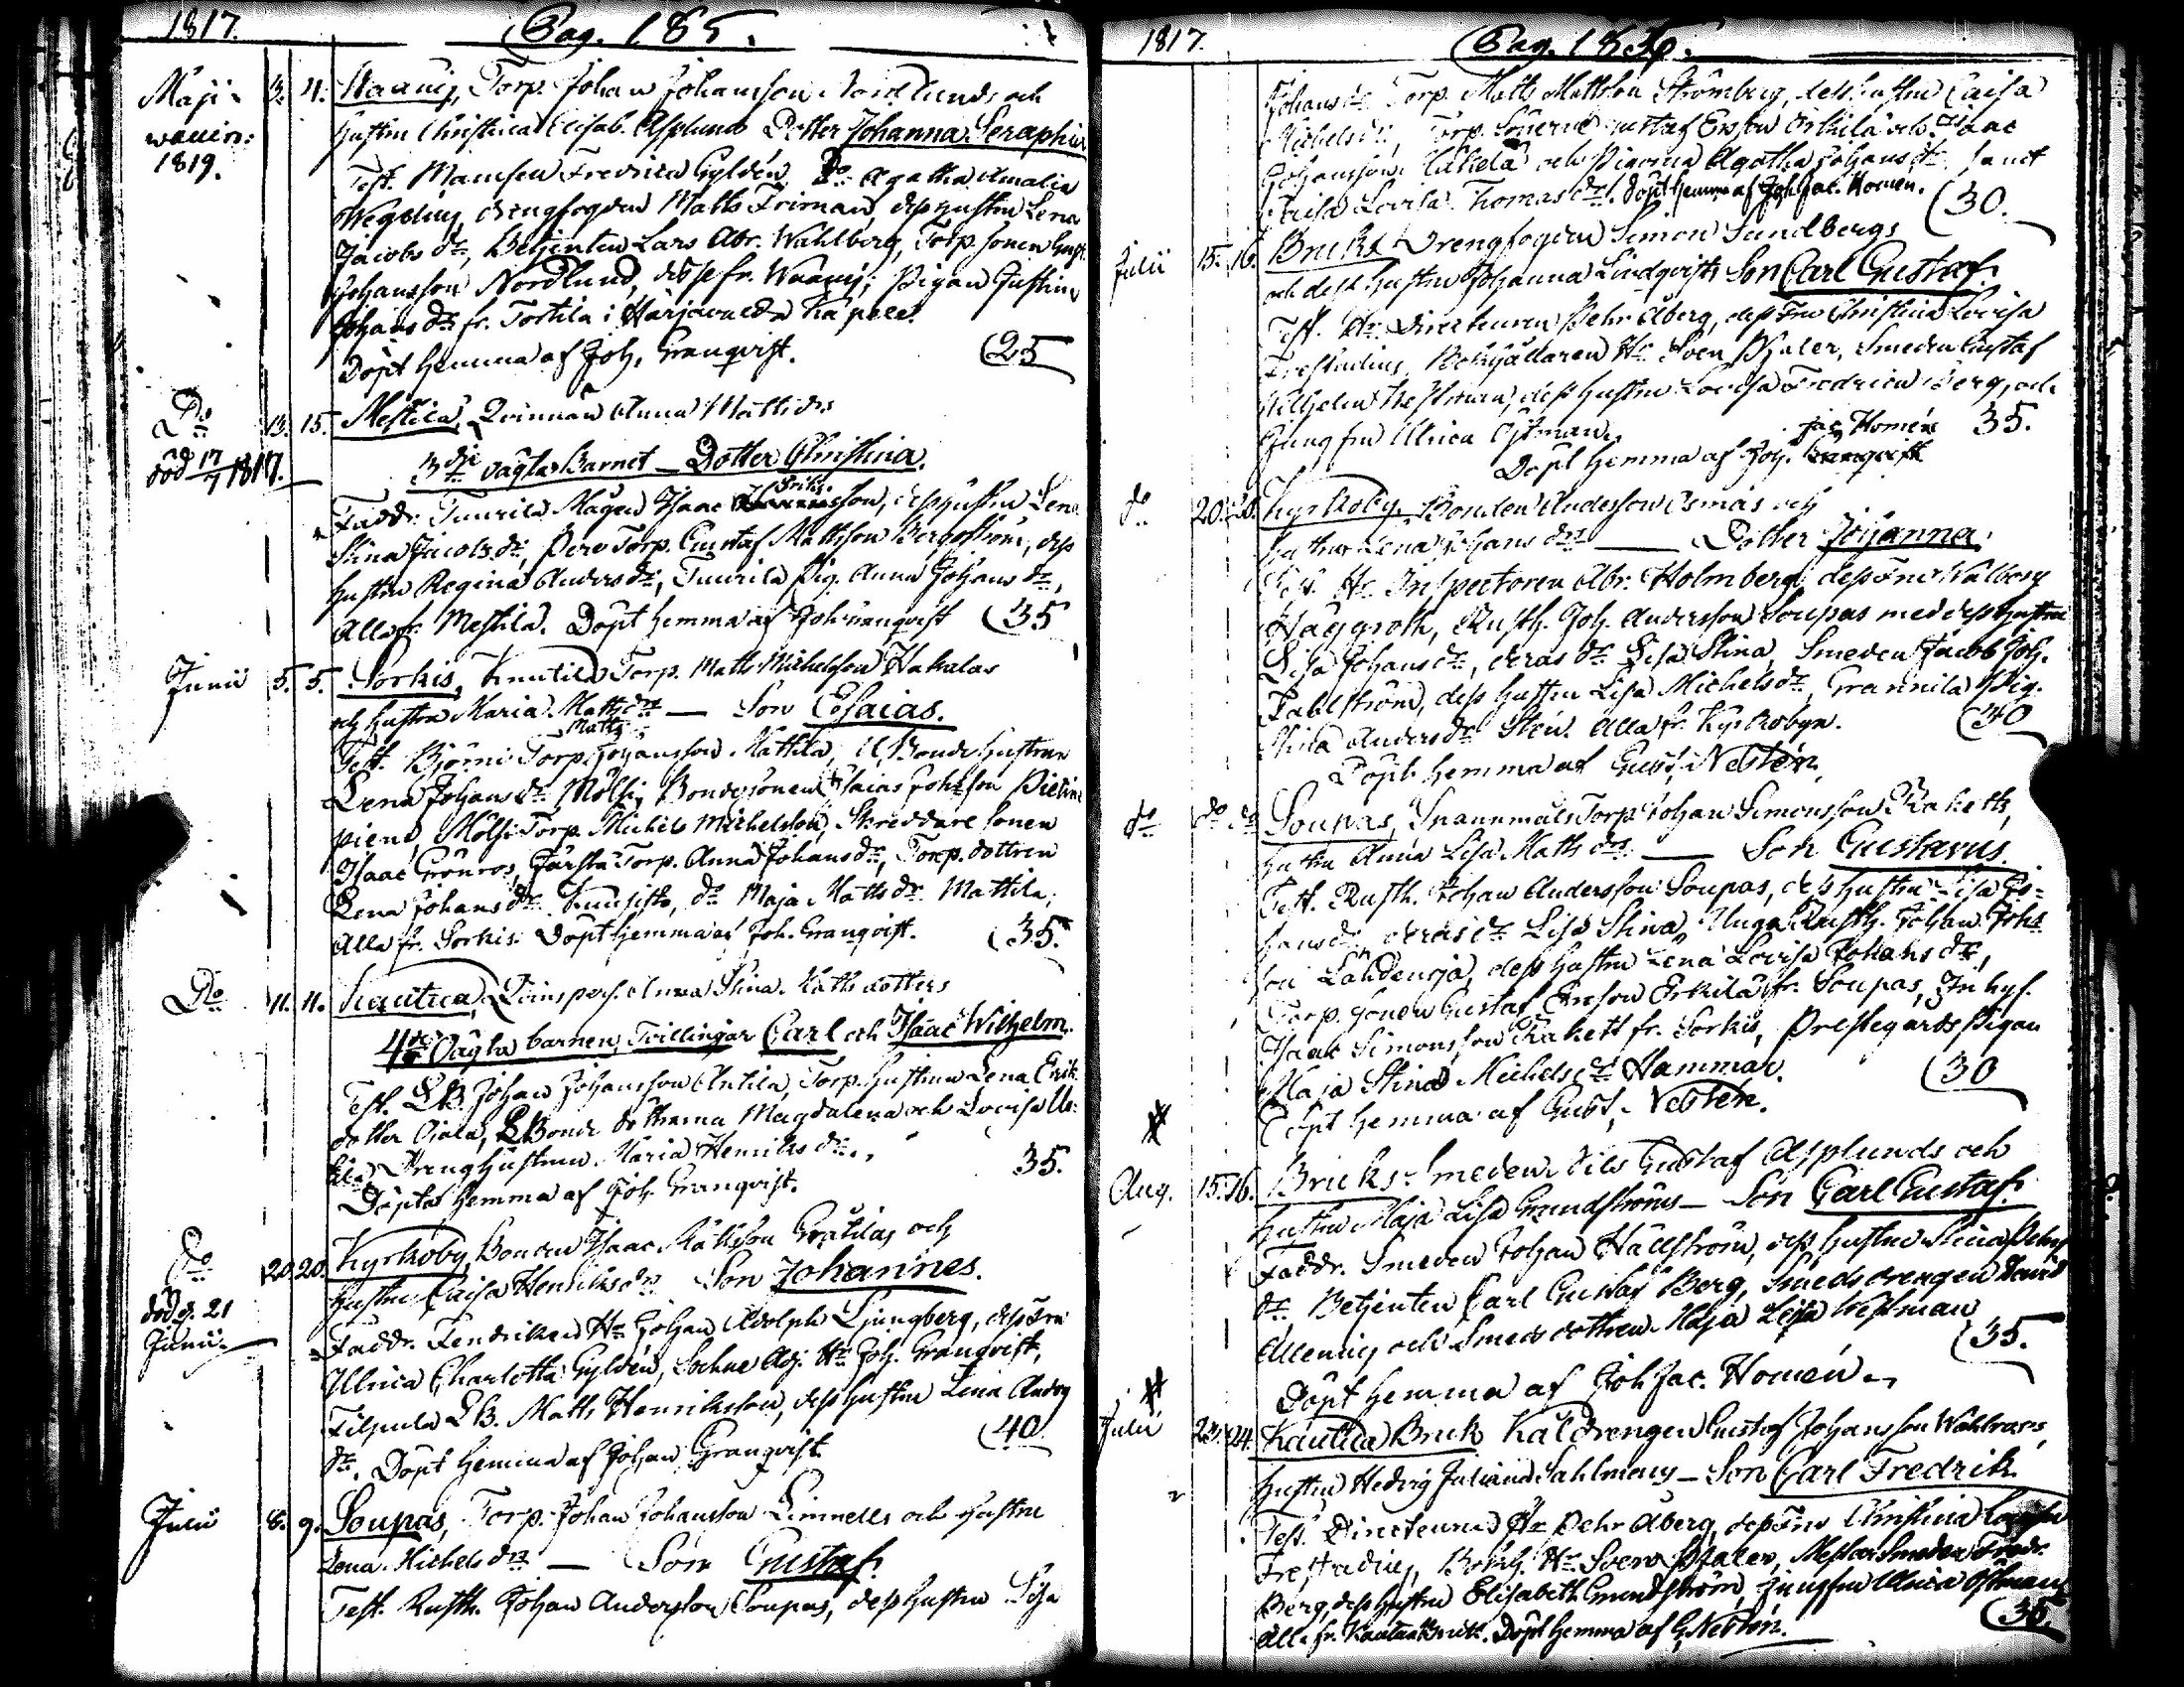 1817. Pag. 185.
Maji 13. 11. Torp. Johan Johansson Nordlunds och
waccin: Hustru Christina Elisab. Asplunds Dotter Johanna Seraphia
1819. Test. Mamsell Fredrica Gyldén, Do Agatha Amalia
Wegelius, drengfogden Matts Friman, dess hustru Lena
Jacobs dr, Betjenten Lars Abr. Wahlberg, Torp. sonen
Johansson Nordlund, pigan Justina
Johans dr fr. Torttila i Harjavalda Capell.
Döpt hemma af Joh. Granqvist. (25
Do 13. 15. Mestilä, Qvinnan Anna Matts drs
död 17/7 1817. 3dje oägta Barnet — Dotter Christina.
Faddr. Tuurila Mågen Isaac Eriksson, dess hustru Lena
Stina Jacobs dr, Pere Torp. Gustaf Mattsson Bergström, dess
hustru Regina Anders dr, Tuurila Pig. Anna Johans dr,
Alla fr. Mestilä. Döpt hemma af Joh. Granqvist (35
Junii 5. 5. Sorkis, Knutila Torp. Matts Michelsson Hakalas
och hustru Maria Matts drs — Son Esaias.
Matts
Test. Björni Torp. Johansson Mattila, Bonde hustrun
Lena Johans dr Mölsi, Bondesonen Esaias Johsson
Mölsi Torp. Michel Michelsson, Skreddare sonen
Isaac Grönros, Torp. Anna Johans dr, Torp. dottren
Lena Johans dr Kuusisto, do Maja Matts dr Mattila,
Alla fr. Sorkis. Döpt hemma af Joh. Granqvist. (35.
Do 11. 11. Kautua, Qvinspers. Anna Stina Matts dotters
4de Oägta barnen, Tvillingar Carl och Isaac Wilhelm.
Test. LB. Johan Johansson Anttila, Torp. hustrun Lena Erik
dotter Ojala, LBonde döttrarna Magdalena och Lovisa
Drenghustrun Maria Henriks dr.
Döpta hemma af Joh. Granqvist. 35.
Do 20. 20. Kyrkoby, Bonden Isaac Mattsson Grätilas och
död d. 21 hustru Caisa Henriks drs Son Johannes.
Junii. Faddr. Fendriken Hr Johan Adolph Ljungberg, dess Fru
Ulrica Charlotta Gyldén, Sockne Adj. Hr Joh. Granqvist,
Filpula LB. Matts Henriksson, dess hustru Lena Anders
dr. Döpt hemma af Johan Granqvist. (40
Julii 8. 9. Soupas, Torp. Johan Johansson Linnells och hustru
Lena Michels drs — Son Gustaf.
Test. Rusth. Johan Andersson Soupas, dess hustru Lisa
1817. Pag. 186.
Johans dr Torp. Matts Mattsson Strömberg, dess hustru Caisa
Michels dr, Torp. Sönerne Gustaf Ersson Erkilä och Isaac
Johansson och Pigorna Agatha Johans dr samt
Lovisa Thomas dr. Döpt hemma af Joh. Jac. Homén. (30.
Julii 15. 16. Bruks Drengfogden Simon Sundbergs
och dess hustru Johanna Lindqvists Son Carl Gustaf.
Test. Hr Directeuren Pehr Åberg, dess Fru Christina Lovisa
Frestadius, Bokhållaren Hr Sven Pfaler, Smeden Gustaf
Wilhelm Westman, dess hustru Lovisa Fredrica Berg, och
Jungfru Ulrica Östman. 35.
Jac. Homén
Döpt hemma af Joh. Granqvist
do 20. 20. Kyrkoby, Bonden Andersson Esmas och
hustru Lena Johans drs — Dotter Johanna.
Test. Hr Inspectoren Abr. Holmberg, dess Fru Walborg
Häggroth, Rusth. Joh. Andersson Soupas med dess hustru
Lisa Johans dr, deras dr Lisa Stina, Smeden Jacob Joh.
Fahlström, dess hustru Lisa Michels dr, Grannila Pig.
Stina Anders dr Sten. Alla fr. Kyrkobyn. (40
Döpt hemma af Gust. Neстén.
do do do Soupas, Torp. Johan Simonsson Raketts,
hustru Anna Lisa Matts drs — Son Gustavus
Test. Rusth. Johan Andersson Soupas, dess hustru Lisa Jo-
hans dr, deras dr Lisa Stina, Unga Rusth. Johan Johs
son Lähdensjä, dess hustru Lena Lovisa Johans dr,
Torp. sonen Gustaf Ersson Erkilä fr. Soupas, Inhys.
Isaac Simonsson Rakett fr. Sorkis, Prestegårds pigan
Maja Stina Michels dr Hammar. (30
Döpt hemma af Gust. Nestén.
Aug. 15. 16. Bruks Smeden Nils Gustaf Asplunds och
hustru Maja Lisa Grundströms — Son Carl Gustaf.
Faddr. Smeden Johan Hällström, dess hustru Stina Pehrs
dr, Betjenten Carl Gustaf Berg, Smedsdrengen David
Allenius och Smeds dottren Maja Lisa Westman
Döpt hemma af Joh. Jac. Homén. (35.
Julii 23. 24. Kautua Bruk Kåldrengen Gustaf Johansson Wahlroos,
hustru Hedvig Juliana Sahlmans — Son Carl Fredrik
Test. Directeuren Hr Pehr Åberg, dess Fru Christina Lovisa
Frestadius, Bokh. Hr Sven Pfaler, Mästar Smeden Fredr.
Berg, dess hustru Elisabeth Grundström, Jungfru Ulrica Östman
Alla fr. Kautua Bruk. Döpt hemma af G. Nestén. (35.